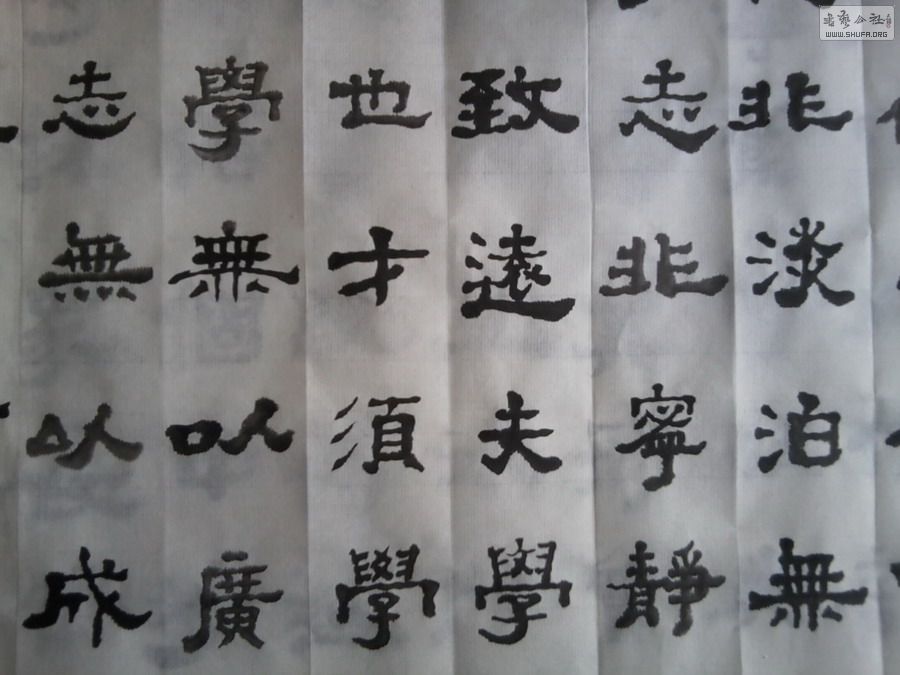 非淡泊無
志非寧靜
致遠夫學
也才須學
學無以廣
志無以成
書藝公社
WWW.SHUFA.ORG